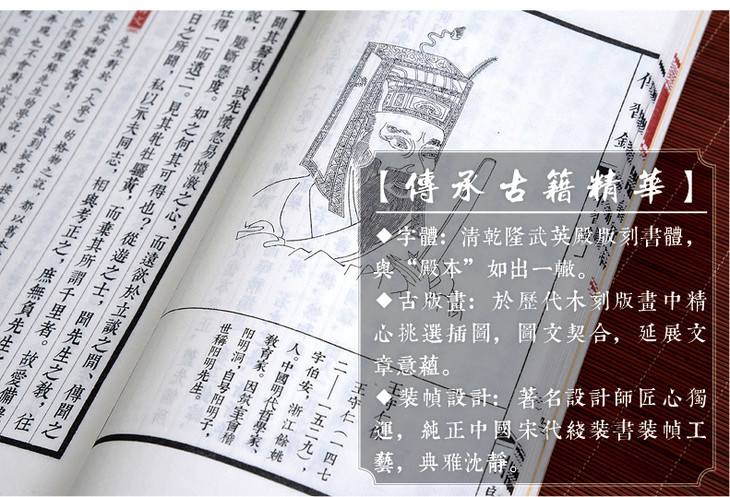 【傳承古籍精華】
◆字體：清乾隆武英殿版刻書體，
與“殿本”如出一轍。
◆古版畫：於歷代木刻版畫中精
心挑選插圖，圖文契合，延展文
章意蘊。
◆裝幀設計：著名設計師匠心獨
運，純正中國宋代綫裝書裝幀工
藝，典雅沈靜。
傳習錄
王守仁（一四七
二——一五二九），
字伯安，浙江餘姚
人。中國明代哲學家、
教育家。因築室會稽
陽明洞，自號陽明子，
世稱陽明先生。
聞其聲欬，或先懷忽易憤激之心，而遽欲於立談之間、傳聞之
說，臆斷懸度。如之何其可得也？從遊之士，聞先生之教，往
往得一而遺二。見其牝牡驪黃，而棄其所謂千里者。故愛備
日之所聞，私以示夫同志，相與考正之，庶無負先生